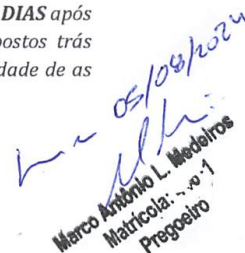 DIAS após
postos trás
dade de as
05/08/2024
Marco Antônio L. Medeiros
Matrícula:
Pregoeiro